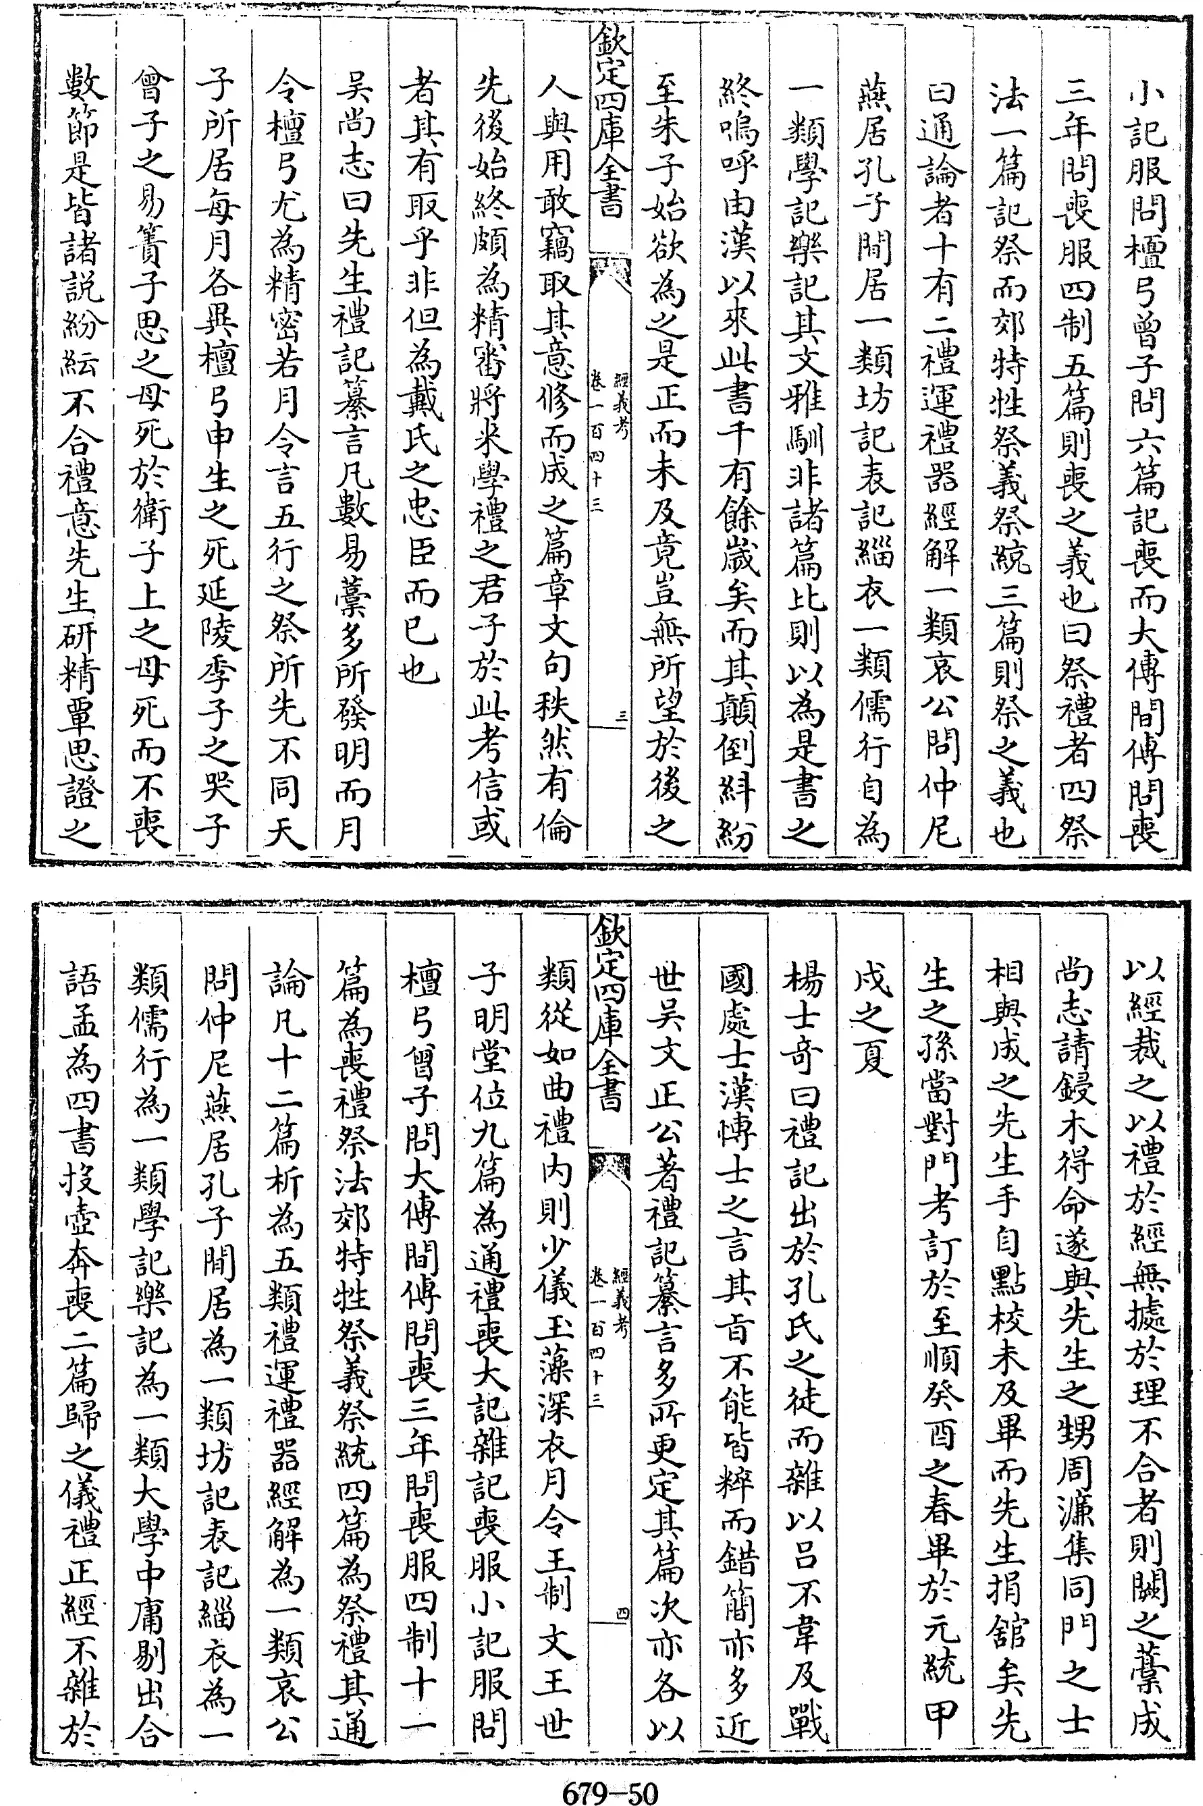 小記服問檀弓曾子問六篇記喪而大傳間傳問喪
三年問喪服四制五篇則喪之義也曰祭禮者四祭
法一篇記祭而郊特牲祭義祭統三篇則祭之義也
曰通論者十有二禮運禮器經解一類哀公問仲尼
燕居孔子閒居一類坊記表記緇衣一類儒行自為
一類學記樂記其文雅馴非諸篇比則以為是書之
終嗚呼由漢以來此書千有餘歲矣而其顛倒糾紛
至朱子始欲為之是正而未及竟豈無所望於後之
欽定四庫全書
經義考
卷一百四十三
三
人與用敢竊取其意修而成之篇章文句秩然有倫
先後始終頗為精審將來學禮之君子於此考信或
者其有取乎非但為戴氏之忠臣而已也
吳尚志曰先生禮記纂言凡數易藁多所發明而月
令檀弓尤為精密若月令言五行之祭所先不同天
子所居每月各異檀弓申生之死延陵季子之哭子
曾子之易簀子思之母死於衛子上之母死而不喪
數節是皆諸說紛紜不合禮意先生研精覃思證之
以經裁之以禮於經無據於理不合者則闕之藁成
尚志請鋟木得命遂與先生之甥周濂集同門之士
相與成之先生手自點校未及畢而先生捐舘矣先
生之孫當對門考訂於至順癸酉之春畢於元統甲
戍之夏
楊士奇曰禮記出於孔氏之徒而雜以呂不韋及戰
國處士漢博士之言其旨不能皆粹而錯簡亦多近
世吳文正公著禮記纂言多所更定其篇次亦各以
欽定四庫全書
經義考
卷一百四十三
四
類從如曲禮內則少儀玉藻深衣月令王制文王世
子明堂位九篇為通禮喪大記雜記喪服小記服問
檀弓曾子問大傳間傳問喪三年問喪服四制十一
篇為喪禮祭法郊特牲祭義祭統四篇為祭禮其通
論凡十二篇析為五類禮運禮器經解為一類哀公
問仲尼燕居孔子閒居為一類坊記表記緇衣為一
類儒行為一類學記樂記為一類大學中庸剔出合
語孟為四書投壺奔喪二篇歸之儀禮正經不雜於
679-50